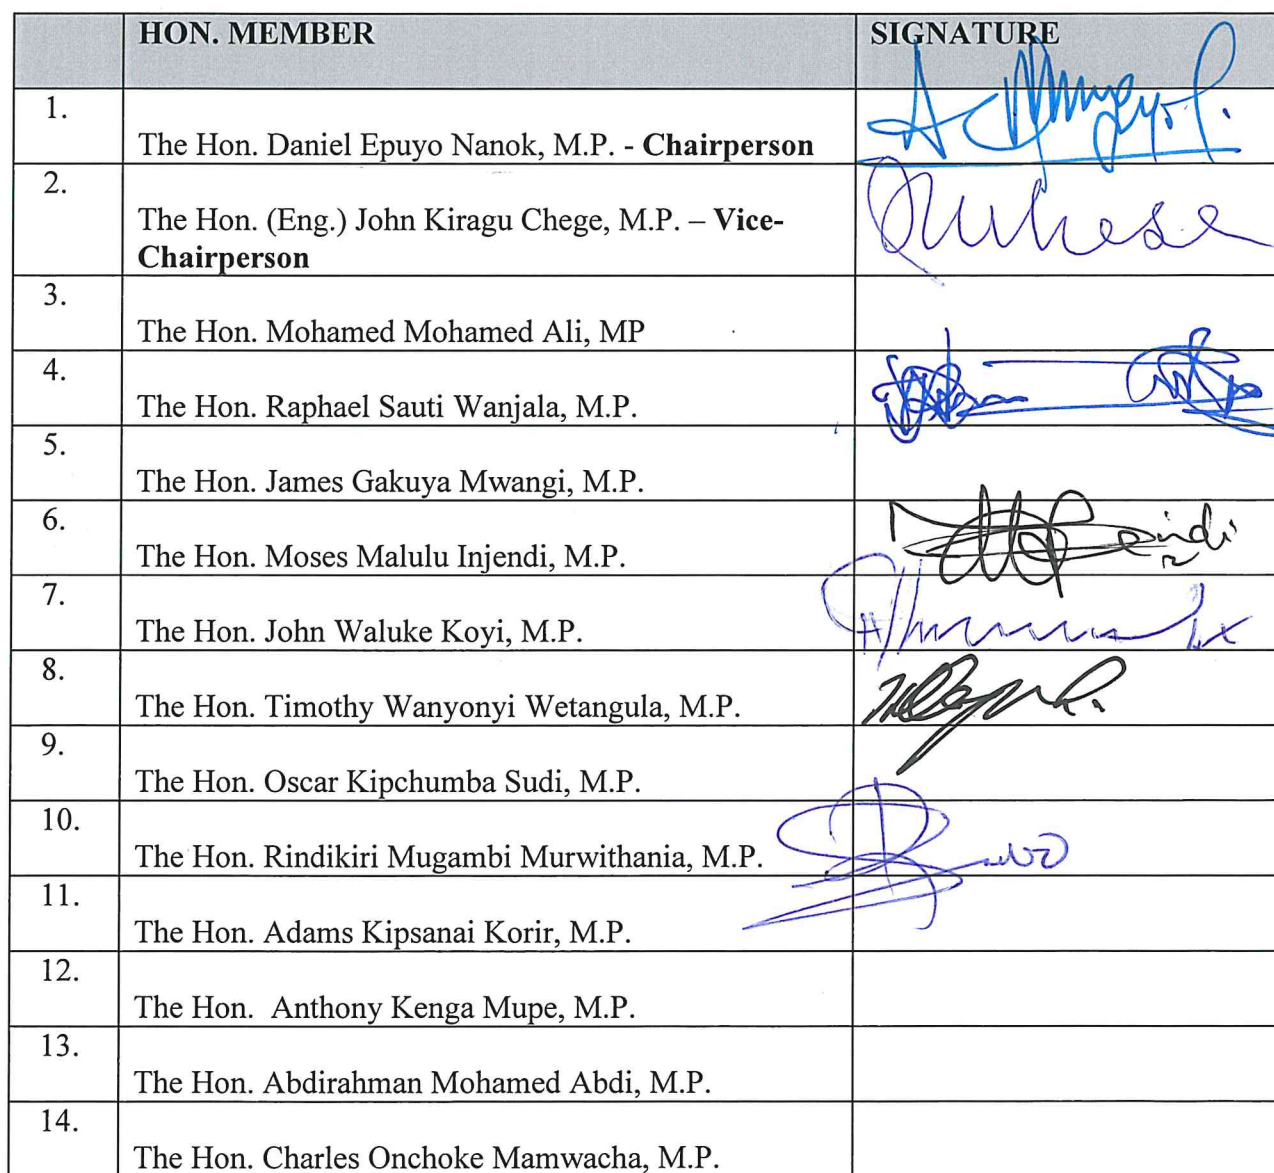 HON. MEMBER SIGNATURE
1.
The Hon. Daniel Epuyo Nanok, M.P. - Chairperson
2.
The Hon. (Eng.) John Kiragu Chege, M.P. – Vice-
Chairperson
3.
The Hon. Mohamed Mohamed Ali, MP
4.
The Hon. Raphael Sauti Wanjala, M.P.
5.
The Hon. James Gakuya Mwangi, M.P.
6.
The Hon. Moses Malulu Injendi, M.P.
7.
The Hon. John Waluke Koyi, M.P.
8.
The Hon. Timothy Wanyonyi Wetangula, M.P.
9.
The Hon. Oscar Kipchumba Sudi, M.P.
10.
The Hon. Rindikiri Mugambi Murwithania, M.P.
11.
The Hon. Adams Kipsanai Korir, M.P.
12.
The Hon. Anthony Kenga Mupe, M.P.
13.
The Hon. Abdirahman Mohamed Abdi, M.P.
14.
The Hon. Charles Onchoke Mamwacha, M.P.